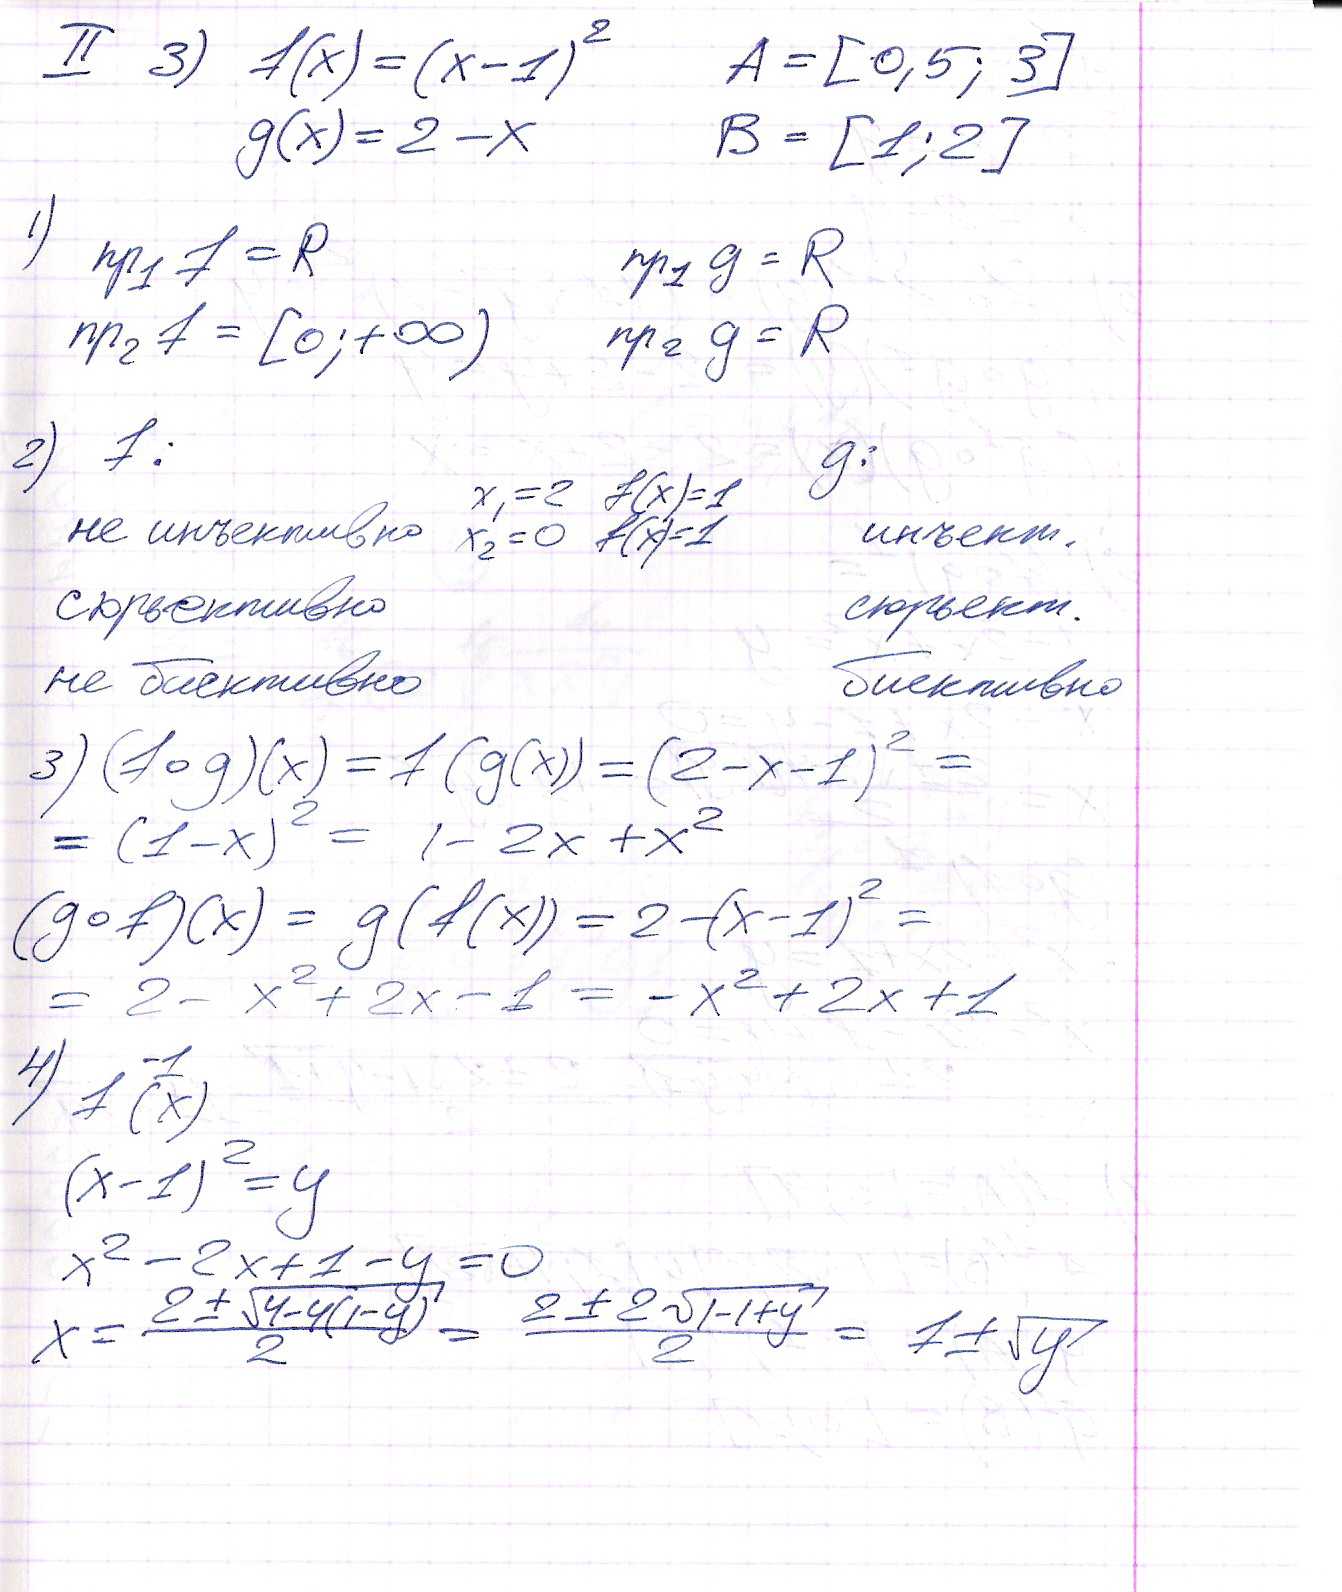 II 3) f(x) = (x-1)² A = [0,5; 3]
g(x) = 2 - x B = [1; 2]
1) пр₁ f = R пр₁ g = R
пр₂ f = [0; +∞) пр₂ g = R
2) f: g:
x₁ = 2 f(x) = 1
не инъективно x₂ = 0 f(x) = 1 инъект.
сюръективно сюръект.
не биективно биективно
3) (f∘g)(x) = f(g(x)) = (2-x-1)² =
= (1-x)² = 1 - 2x + x²
(g∘f)(x) = g(f(x)) = 2-(x-1)² =
= 2 - x² + 2x - 1 = -x² + 2x + 1
4) f⁻¹(x)
(x-1)² = y
x² - 2x + 1 - y = 0
x = (2 ± √(4-4(1-y)))/2 = (2 ± 2√(1-1+y))/2 = 1 ± √y